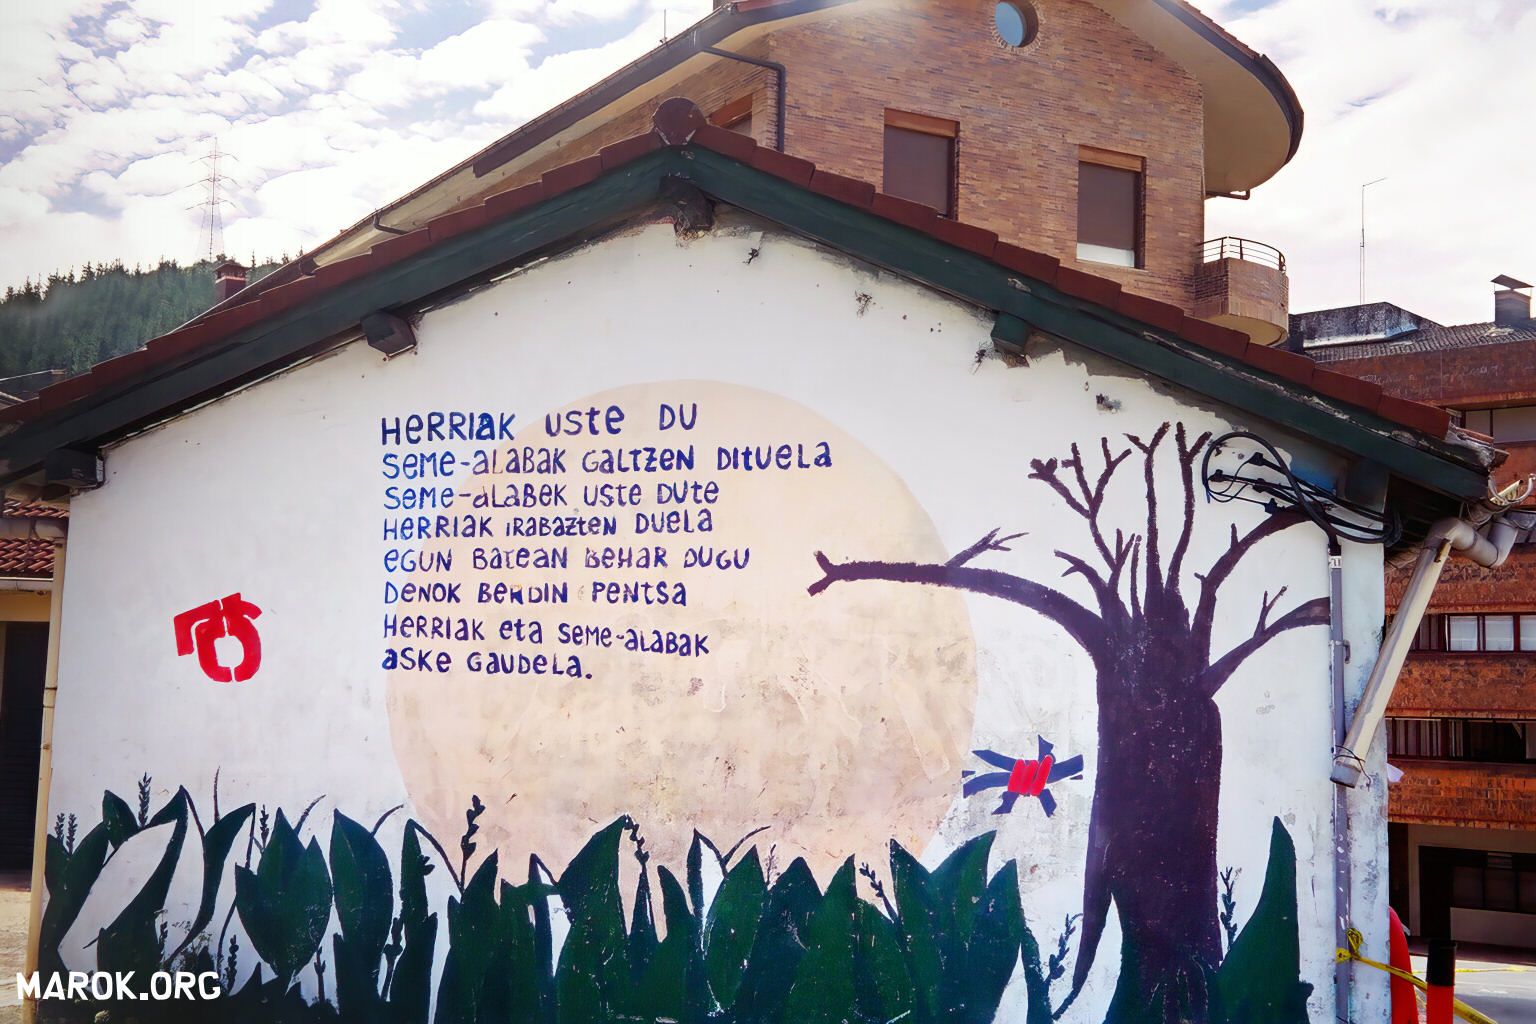 HERRIAK USTE DU
SEME-ALABAK GALTZEN DITUELA
SEME-ALABEK USTE DUTE
HERRIAK IRABAZTEN DUELA
EGUN BATEAN BEHAR DUGU
DENOK BERDIN PENTSA
HERRIAK ETA SEME-ALABAK
ASKE GAUDELA.
MAROK.ORG